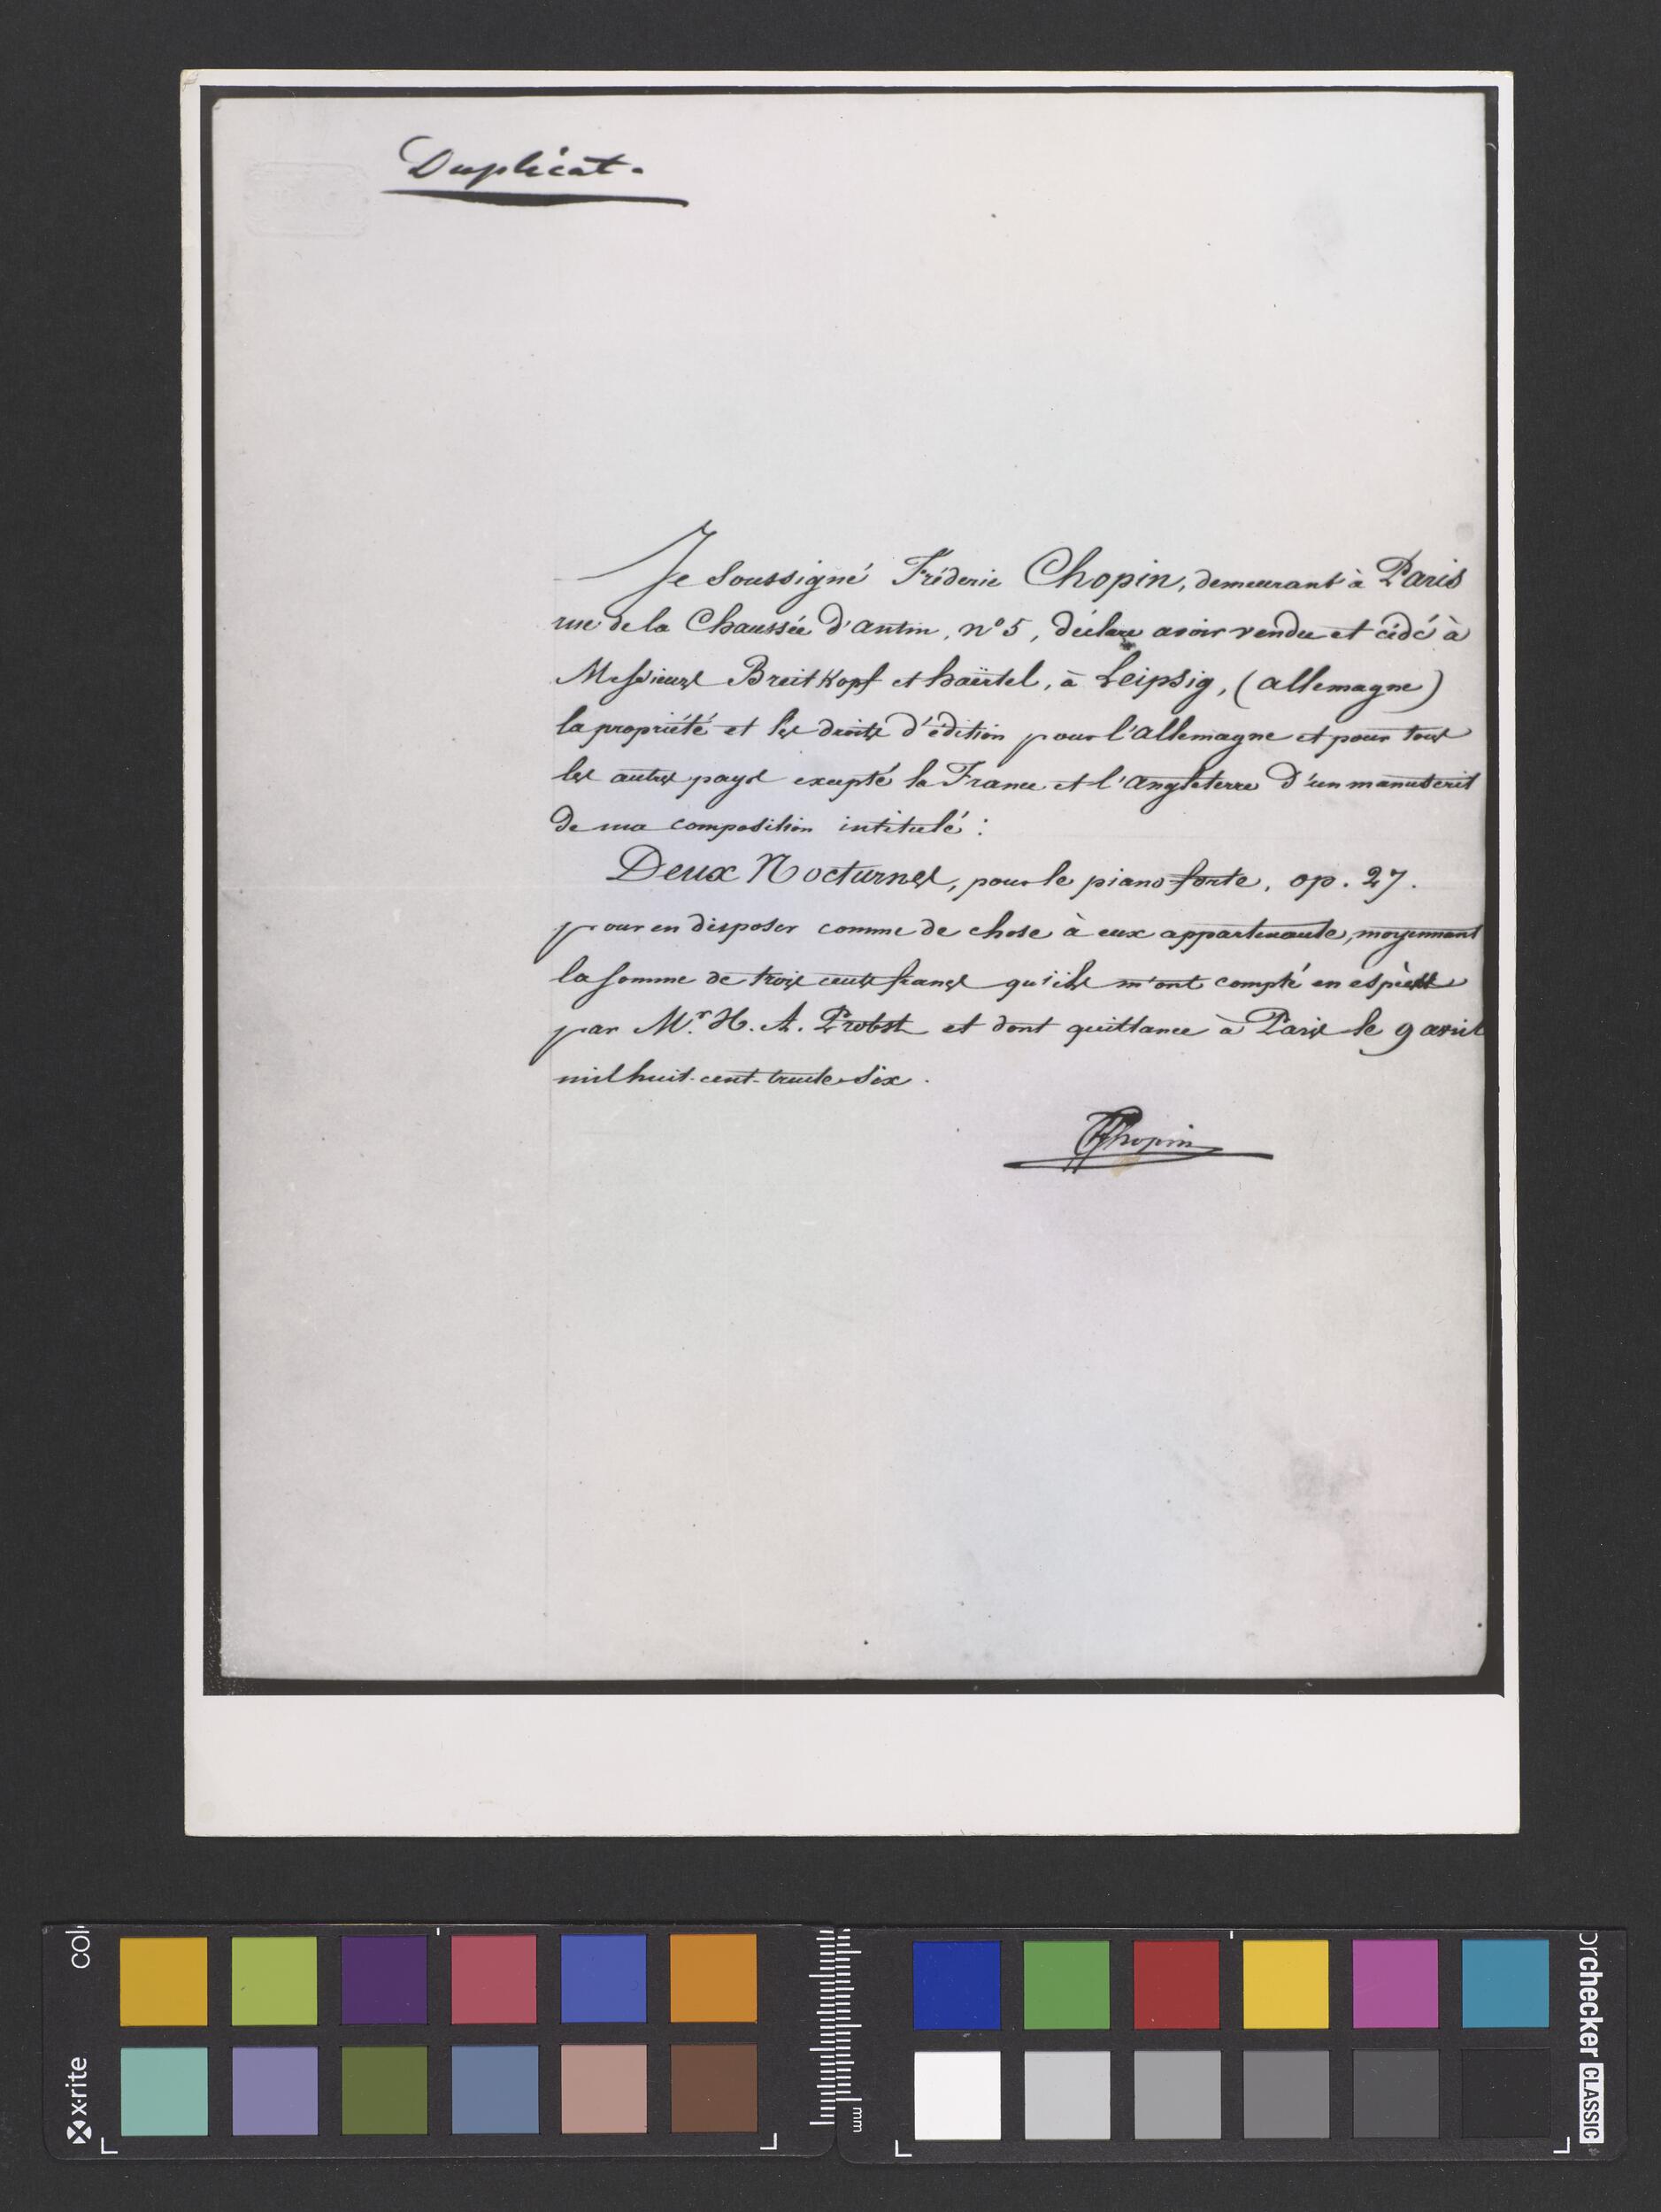 Duplicat.
Je Soussigné Fréderic Chopin, demeurant à Paris
rue de la Chaussée d'antin, nº 5, déclare avoir vendu et cédé à
Messieurs Breitkopf et haërtel, à Leipsig, (allemagne)
la propriété et les droits d'édition pour l'allemagne et pour tous
les autres pays excepté la France et l'angleterre d'un manuscrit
de ma composition intitulé :
Deux Nocturnes, pour le piano forte, op. 27.
pour en disposer comme de chose à eux appartenante, moyennant
la somme de trois cents francs qu'ils m'ont compté en espèces
par Mr. H. A. Probst et dont quittance à Paris le 9 avril
mil huit-cent-trente-six.
FChopin
x-rite
col
mm
orchecker CLASSIC